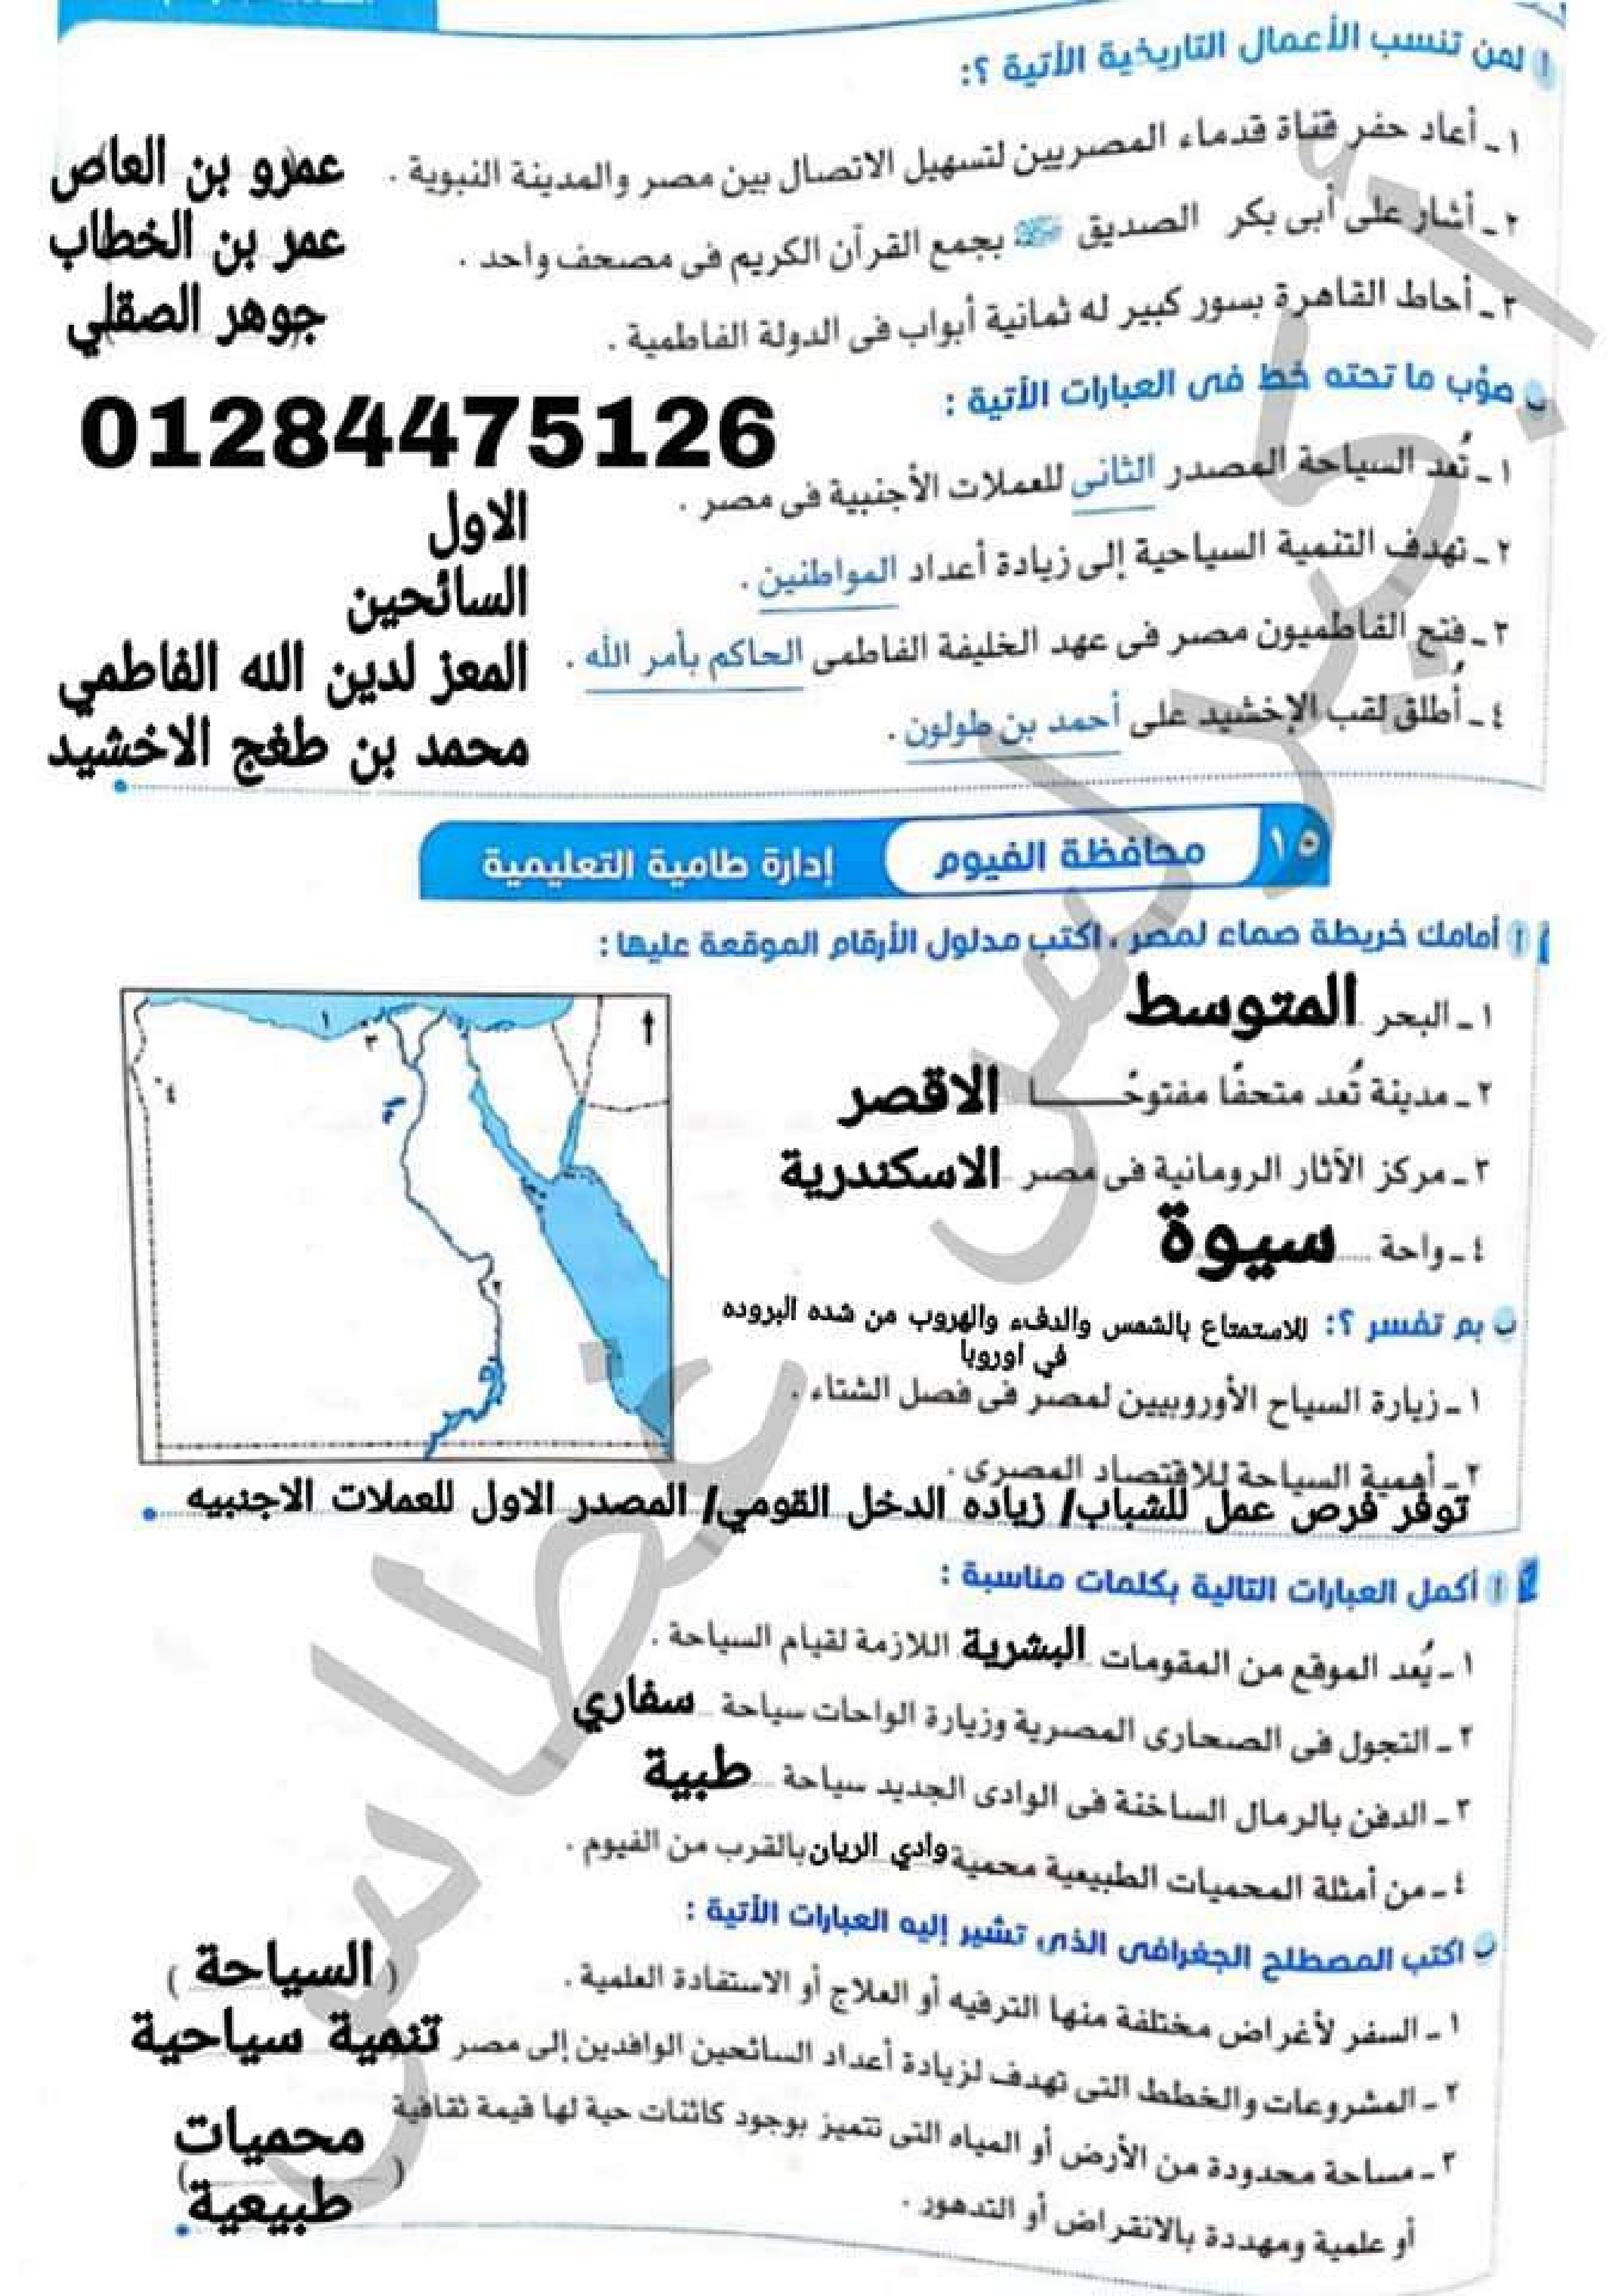 أ لمن تنسب الأعمال التاريخية الأتية ؟:
١ ـ أعاد حفر قناة قدماء المصريين لتسهيل الاتصال بين مصر والمدينة النبوية . عمرو بن العاص
٢ ـ أشار على أبى بكر الصديق بجمع القرآن الكريم فى مصحف واحد . عمر بن الخطاب
٣ ـ أحاط القاهرة بسور كبير له ثمانية أبواب فى الدولة الفاطمية . جوهر الصقلي
ب صوّب ما تحته خط فى العبارات الأتية :
01284475126
١ ـ تُعد السياحة المصدر الثانى للعملات الأجنبية فى مصر . الاول
٢ ـ تهدف التنمية السياحية إلى زيادة أعداد المواطنين . السائحين
٣ ـ فتح الفاطميون مصر فى عهد الخليفة الفاطمى الحاكم بأمر الله . المعز لدين الله الفاطمي
٤ ـ أُطلق لقب الإخشيد على أحمد بن طولون . محمد بن طغج الاخشيد
١٥ محافظة الفيوم إدارة طامية التعليمية
١ أ أمامك خريطة صماء لمصر ، اكتب مدلول الأرقام الموقعة عليها :
١ ـ البحر المتوسط
٢ ـ مدينة تُعد متحفًا مفتوحًـــــا الاقصر
٣ ـ مركز الآثار الرومانية فى مصر الاسكندرية
٤ ـ واحة سيوة
١
٣
٤
٢
ب بم تفسر ؟: للاستمتاع بالشمس والدفء والهروب من شده البروده
في اوروبا
١ ـ زيارة السياح الأوروبيين لمصر فى فصل الشتاء .
٢ ـ أهمية السياحة للاقتصاد المصرى .
توفر فرص عمل للشباب/ زياده الدخل القومي/ المصدر الاول للعملات الاجنبيه
٢ أ أكمل العبارات التالية بكلمات مناسبة :
١ ـ يُعد الموقع من المقومات البشرية اللازمة لقيام السياحة .
٢ ـ التجول فى الصحارى المصرية وزيارة الواحات سياحة سفاري
٣ ـ الدفن بالرمال الساخنة فى الوادى الجديد سياحة طبية
٤ ـ من أمثلة المحميات الطبيعية محمية وادي الريان بالقرب من الفيوم .
ب اكتب المصطلح الجغرافى الذى تشير إليه العبارات الأتية :
١ ـ السفر لأغراض مختلفة منها الترفيه أو العلاج أو الاستفادة العلمية . ( السياحة )
٢ ـ المشروعات والخطط التى تهدف لزيادة أعداد السائحين الوافدين إلى مصر تنمية سياحية
٣ ـ مساحة محدودة من الأرض أو المياه التى تتميز بوجود كائنات حية لها قيمة ثقافية
أو علمية ومهددة بالانقراض أو التدهور . ( محميات
طبيعية )